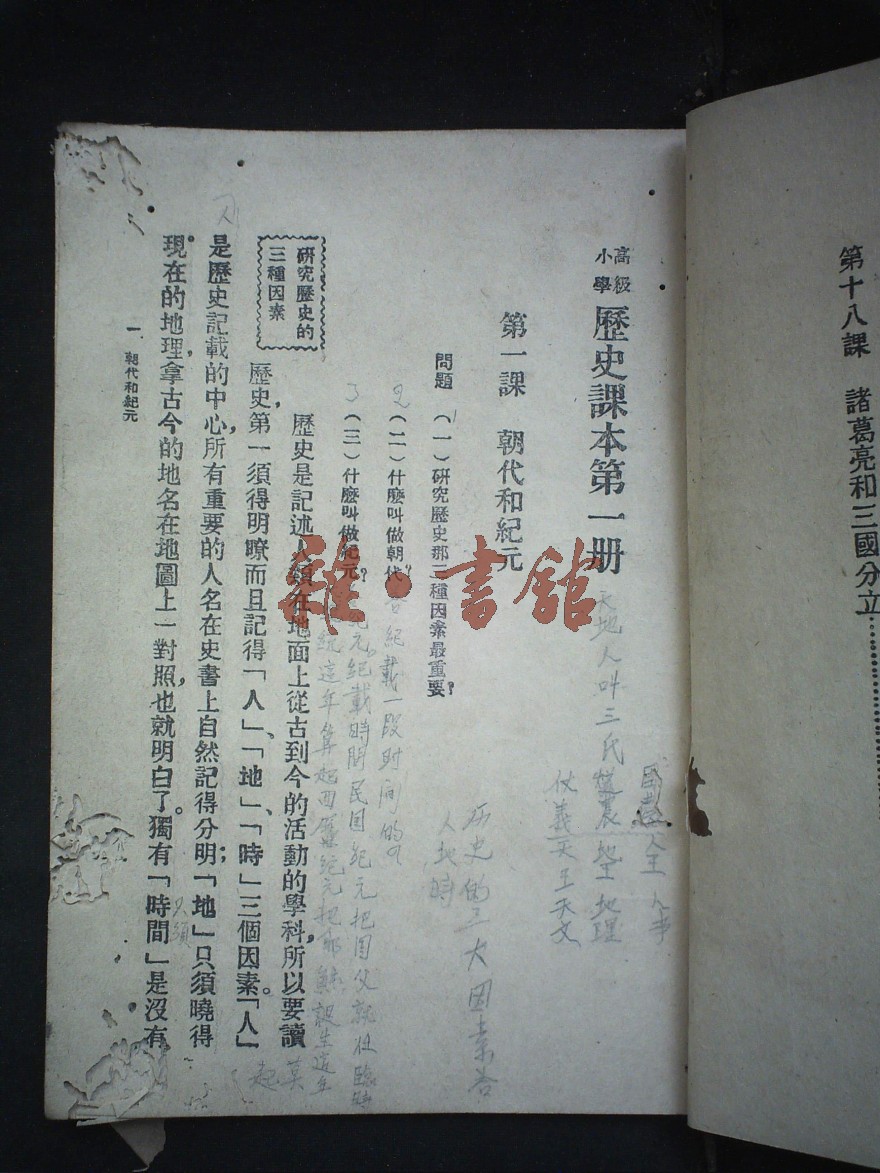 第十八課　諸葛亮和三國分立…………
高級
小學
歷史課本第一册
第一課　朝代和紀元
問題　(一)研究歷史那三種因素最重要?
(二)什麼叫做朝代?
(三)什麼叫做紀元?
研究歷史的
三種因素
歷史是記述人類在地面上從古到今的活動的學科,所以要讀
歷史,第一須得明瞭而且記得「人」、「地」、「時」三個因素。「人」
是歷史記載的中心,所有重要的人名在史書上自然記得分明;「地」只須曉得
現在的地理,拿古今的地名在地圖上一對照,也就明白了。獨有「時間」是沒有
一　朝代和紀元
天地人叫三氏
人王人事
地王地理
天王天文
历史的三大因素答
人地時
紀載一段时间的
紀載時間民国紀元把国父就任臨時
這年算起西曆紀元把耶穌誕生這年
起
只須
雅·書館